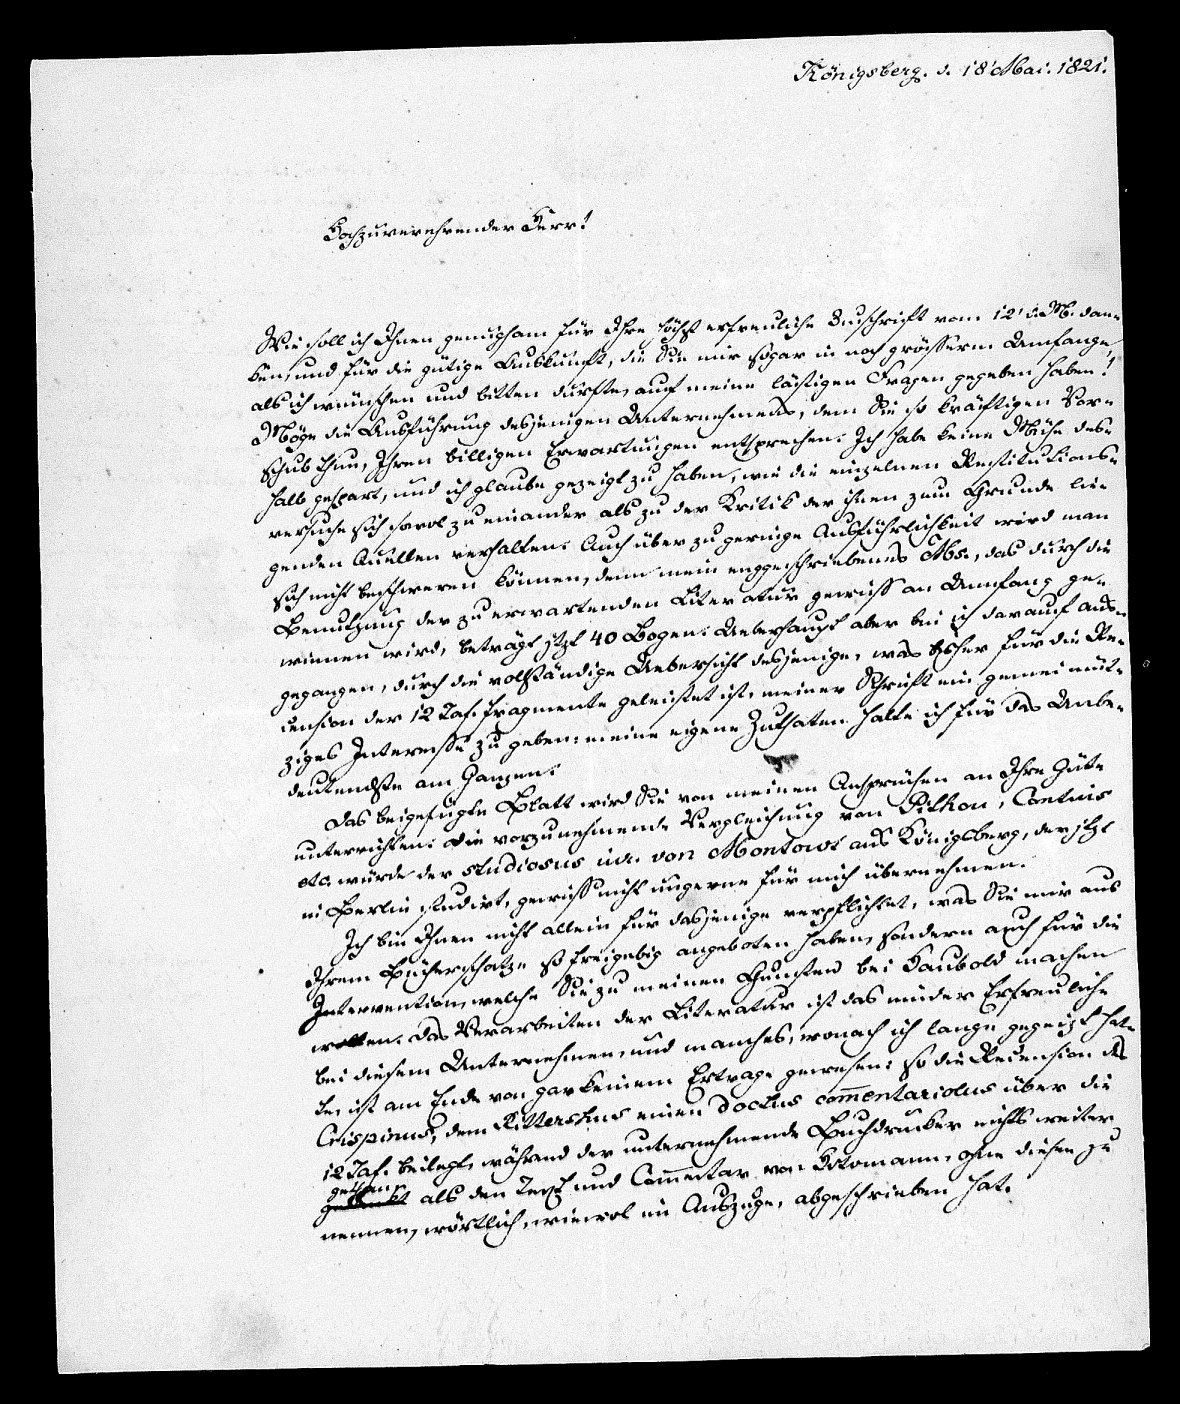 Königsberg. d. 18 Mai. 1821.
Hochzuverehrender Herr!
Wie soll ich Ihnen genugsam für Ihre höchst erfreuliche Zuschrift vom 12 d. M. dan-
ken, und für die gütige Auskunft, die Sie mir sogar in noch grösserm Umfange,
als ich wünschen und bitten durfte, auf meine lästigen Fragen gegeben haben!
Möge die Ausführung desjenigen Unternehmens, dem Sie so kräftigen Vor-
schub thun, Ihren billigen Erwartungen entsprechen. Ich habe keine Mühe des-
halb gespart, und ich glaube gezeigt zu haben, wie die einzelnen Restitutions-
versuche sich sowol zu einander als zu der Kritik der ihnen zum Grunde lie-
genden Quellen verhalten. Auch über zu geringe Ausführlichkeit wird man
sich nicht beschweren können, denn mein enggeschriebenes Mbs., das durch die
Benutzung der zu erwartenden Literatur gewiss an Umfang ge-
winnen wird, beträgt jetzt 40 Bogen. Ueberhaupt aber bin ich darauf aus-
gegangen, durch die vollständige Uebersicht desjenigen, was bisher für die Re-
cension der 12 Taf. Fragmente geleistet ist, meiner Schrift ein gemeinnüt-
ziges Interesse zu geben: meine eigene Zuthaten halte ich für das Unbe-
deutendste am Ganzen.
Das beigefügte Blatt wird Sie von meinen Ansprüchen an Ihre Güte
unterrichten. Die vorzunehmende Vergleichung von Pithou, Contius
etc. würde der studiosus iur. von Montowt aus Königsberg, der jetzt
in Berlin studirt, gewiss nicht ungerne für mich übernehmen.
Ich bin Ihnen nicht allein für dasjenige verpflichtet, was Sie mir aus
Ihrem Bücherschatze so freigebig angeboten haben, sondern auch für die
Intervention, welche Sie zu meinen Gunsten bei Haubold machen
wollen. Das Verarbeiten der Literatur ist das minder Erfreuliche
bei diesem Unternehmen, und manches, wonach ich lange gegeizt hat-
te, ist am Ende von gar keinem Ertrage gewesen: so die Recension des
Crispinus, dem Rittershus einen doctus com̄entariolus über die
12 Taf. beilegt, während der unternehmende Buchdrucker nichts weiter
gethan
als den Text und Com̄entar von Hotomann, ohne diesen zu
nennen, wörtlich, wiewol im Auszuge, abgeschrieben hat.